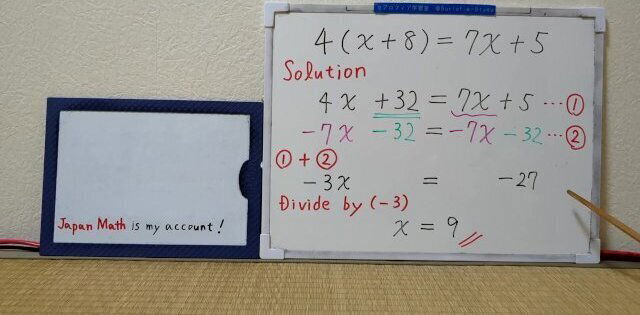 4(x+8)=7x+5
Solution
4x +32 = 7x +5 …①
-7x -32 = -7x -32 …②
① + ②
-3x = -27
Divide by (-3)
x = 9
Japan Math is my account!